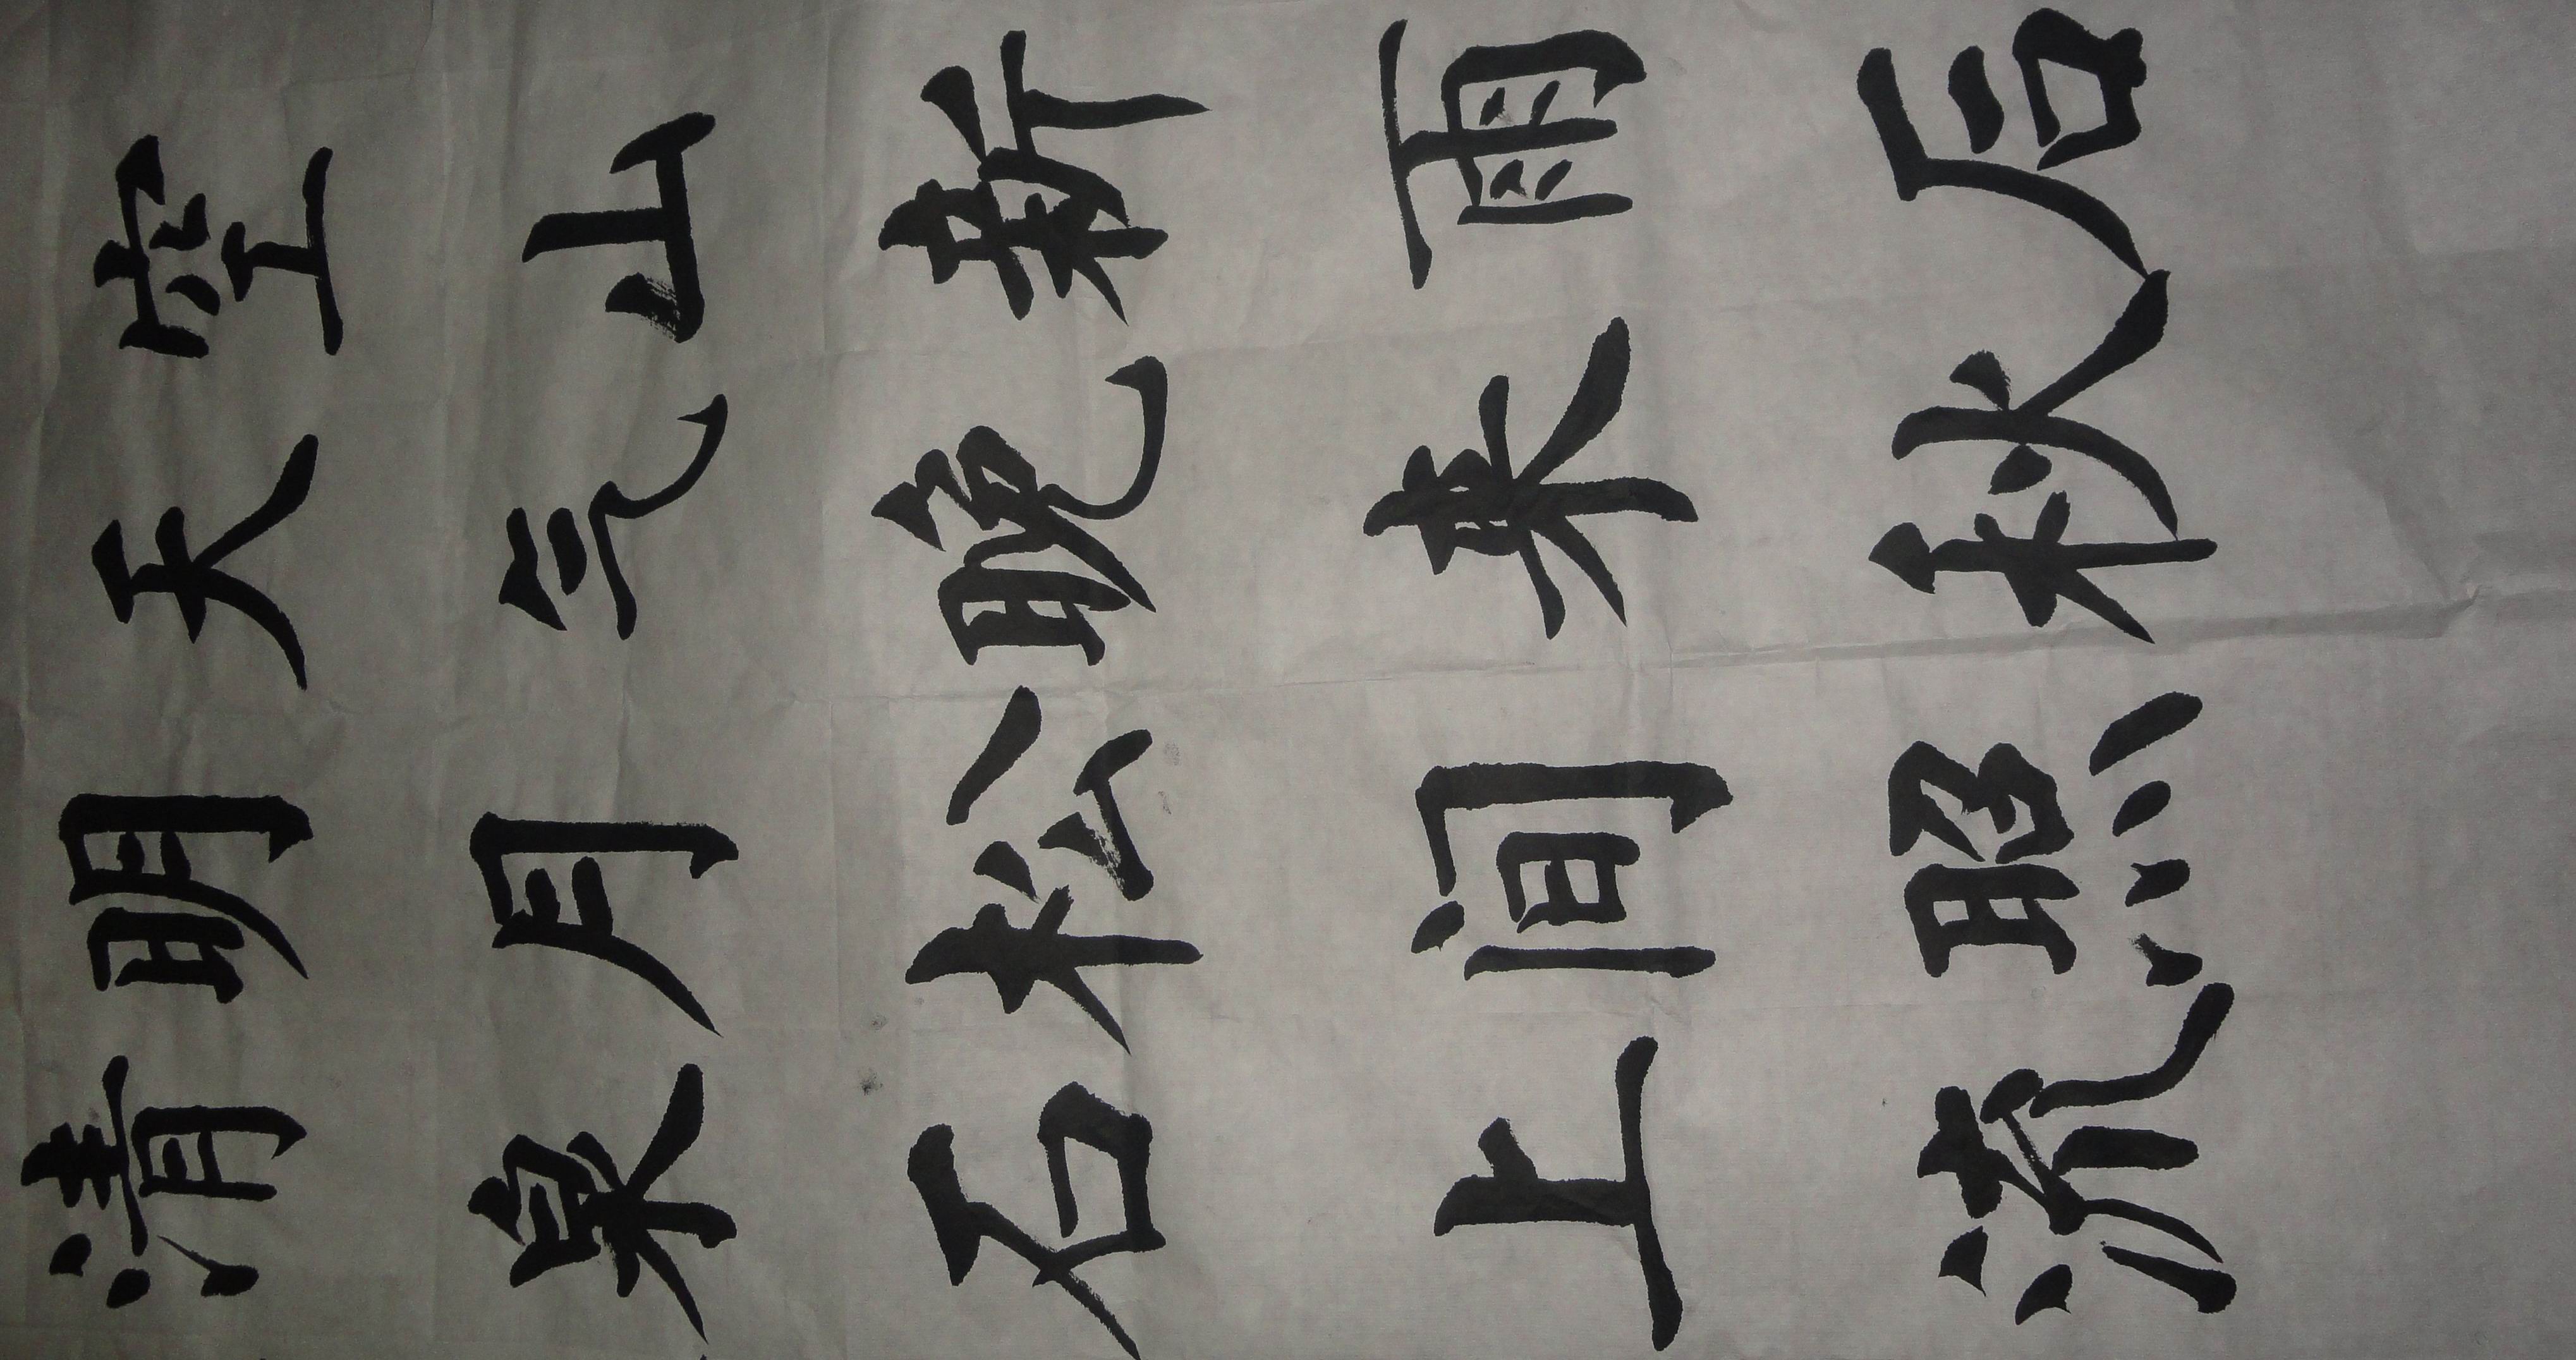 空山新雨后
天气晚来秋
明月松间照
清泉石上流